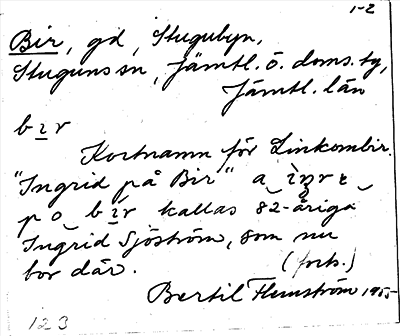 1-2
Bir, gd, Stugubyn,
Stuguns sn, Jämtl. ö. doms. tg,
Jämtl. län
bır
Kortnamn för Linkombir.
"Ingrid på Bir" a ıŋrɛ
po bır kallas 82-åriga
Ingrid Sjöström, som nu
bor där. (forts.)
Bertil Flemström 1955
123